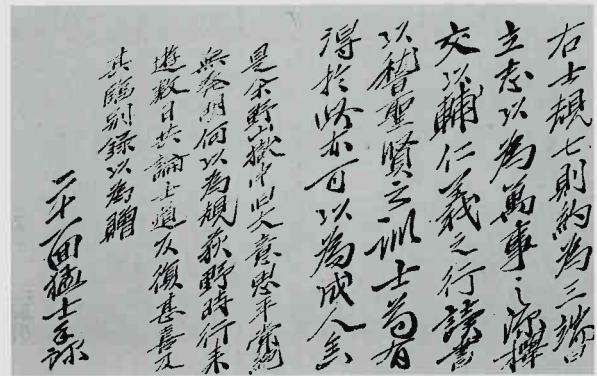 右士規七則約為三端曰
立志以為萬事之源擇
交以輔仁義之行讀書
以稽聖賢之訓士苟有
得於此亦可以為成人矣
是余野山獄中旧文意思平常絶
無發明何以為規荻野時行来
遊数日共論士道反復甚喜及
其臨別録以為贈
二十一回猛士手